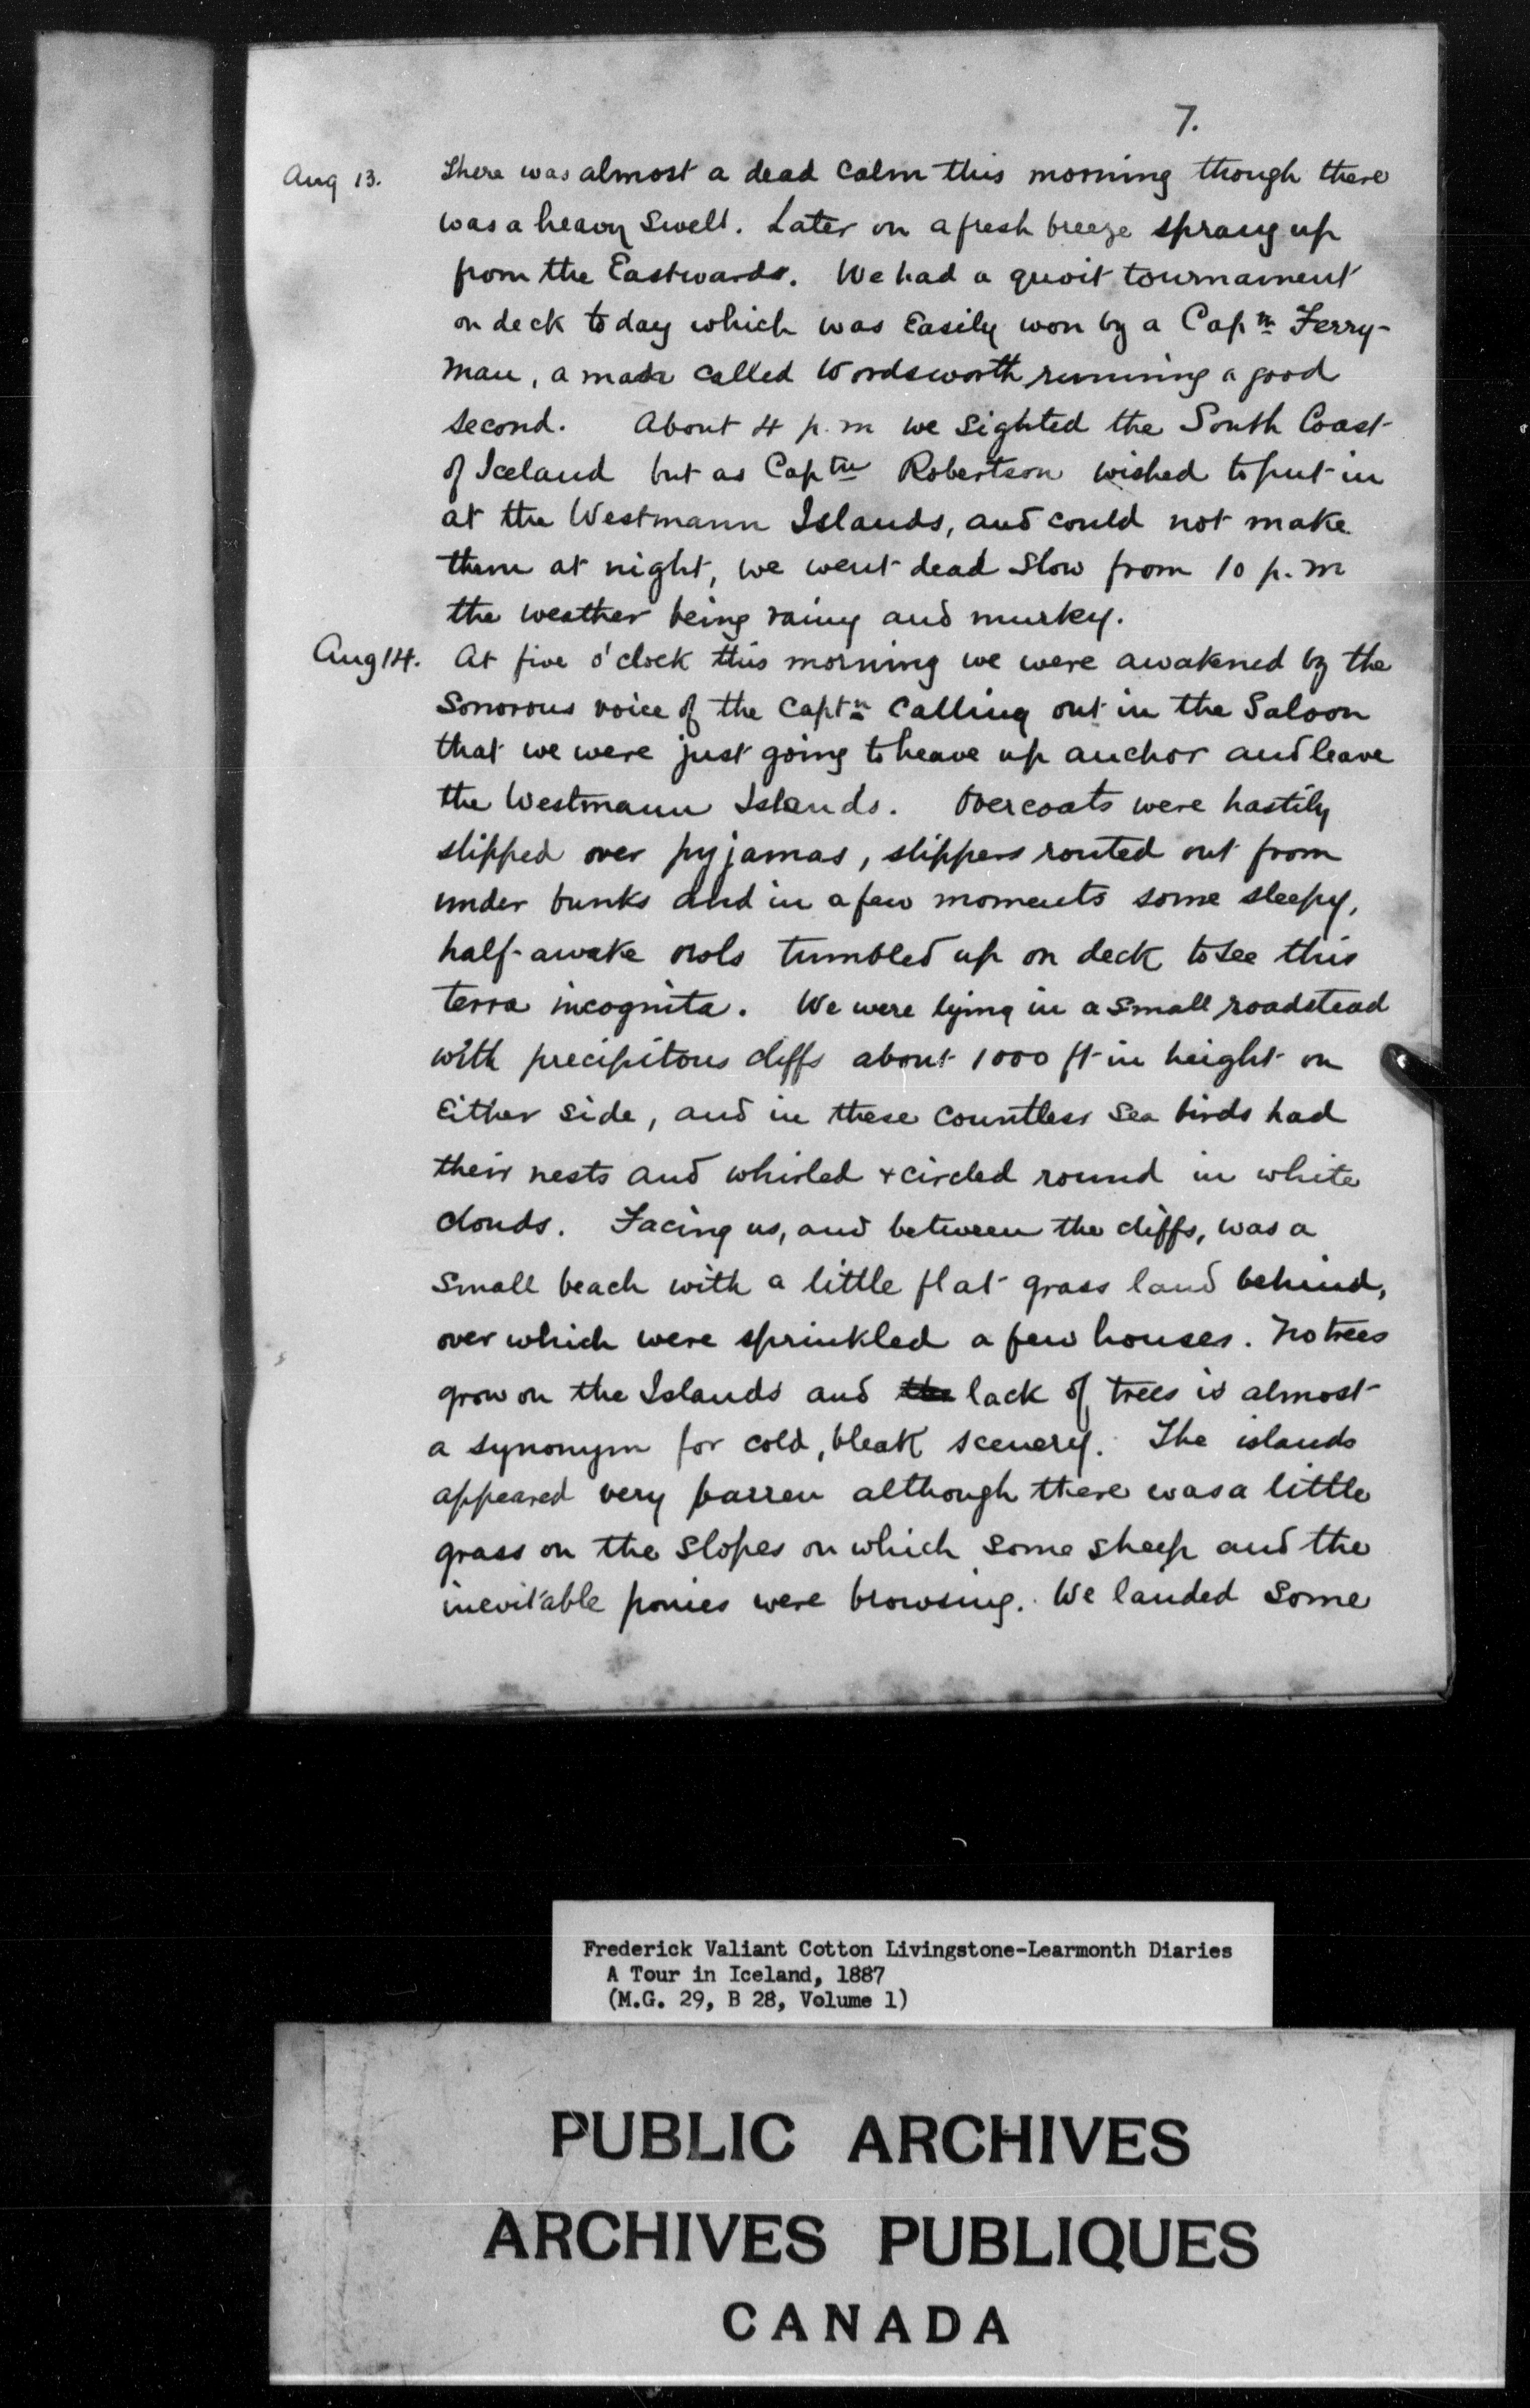 7.
Aug 13. There was almost a dead calm this morning though there
was a heavy swell. Later on a fresh breeze sprang up
from the Eastwards. We had a quoit tournament
on deck to day which was Easily won by a Captn Ferry-
man, a man called Wordsworth running a good
second. About 4 p.m we sighted the South Coast
of Iceland but as Captn Robertson wished to put in
at the Westmann Islands, and could not make
them at night, we went dead slow from 10 p.m
the weather being rainy and murky.
Aug 14. At five o'clock this morning we were awakened by the
Sonorous voice of the Captn calling out in the Saloon
that we were just going to heave up anchor and leave
the Westmann Islands. Overcoats were hastily
slipped over pyjamas, slippers routed out from
under bunks and in a few moments some sleepy,
half-awake owls tumbled up on deck to see this
terra incognita. We were lying in a small roadstead
with precipitous cliffs about 1000 ft in height on
Either side, and in these countless sea birds had
their nests and whirled + circled round in white
clouds. Facing us, and between the cliffs, was a
small beach with a little flat grass land behind,
over which were sprinkled a few houses. No trees
grow on the Islands and the lack of trees is almost
a synonym for cold, bleak scenery. The islands
appeared very barren although there was a little
grass on the slopes on which some sheep and the
inevitable ponies were browsing. We landed some
Frederick Valiant Cotton Livingstone-Learmonth Diaries
A Tour in Iceland, 1887
(M.G. 29, B 28, Volume 1)
PUBLIC ARCHIVES
ARCHIVES PUBLIQUES
CANADA